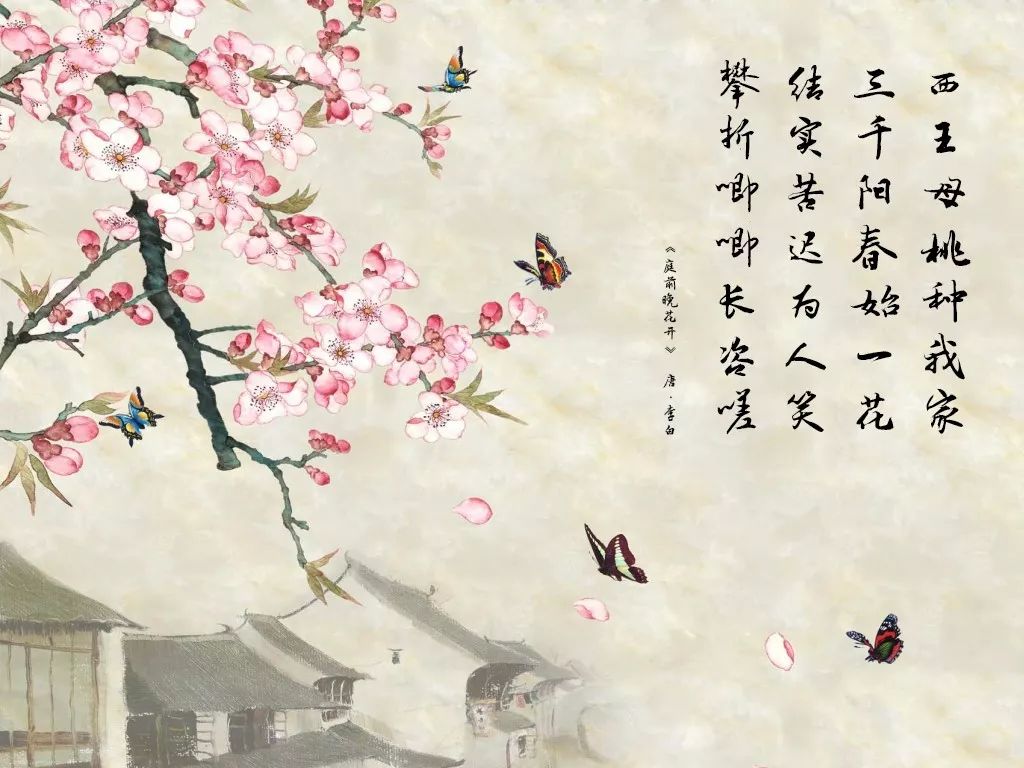 西王母桃种我家
三千阳春始一花
结实苦迟为人笑
攀折唧唧长咨嗟
《庭前晚花开》 唐·李白